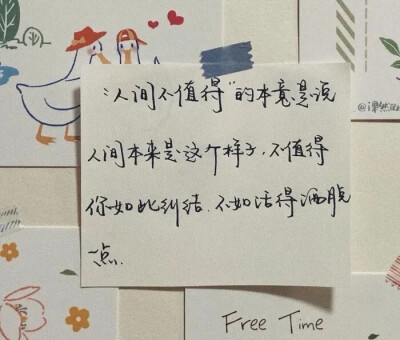 “人间不值得”的本意是说
人间本来是这个样子，不值得
你如此纠结，不如活得洒脱
一点.
Free Time